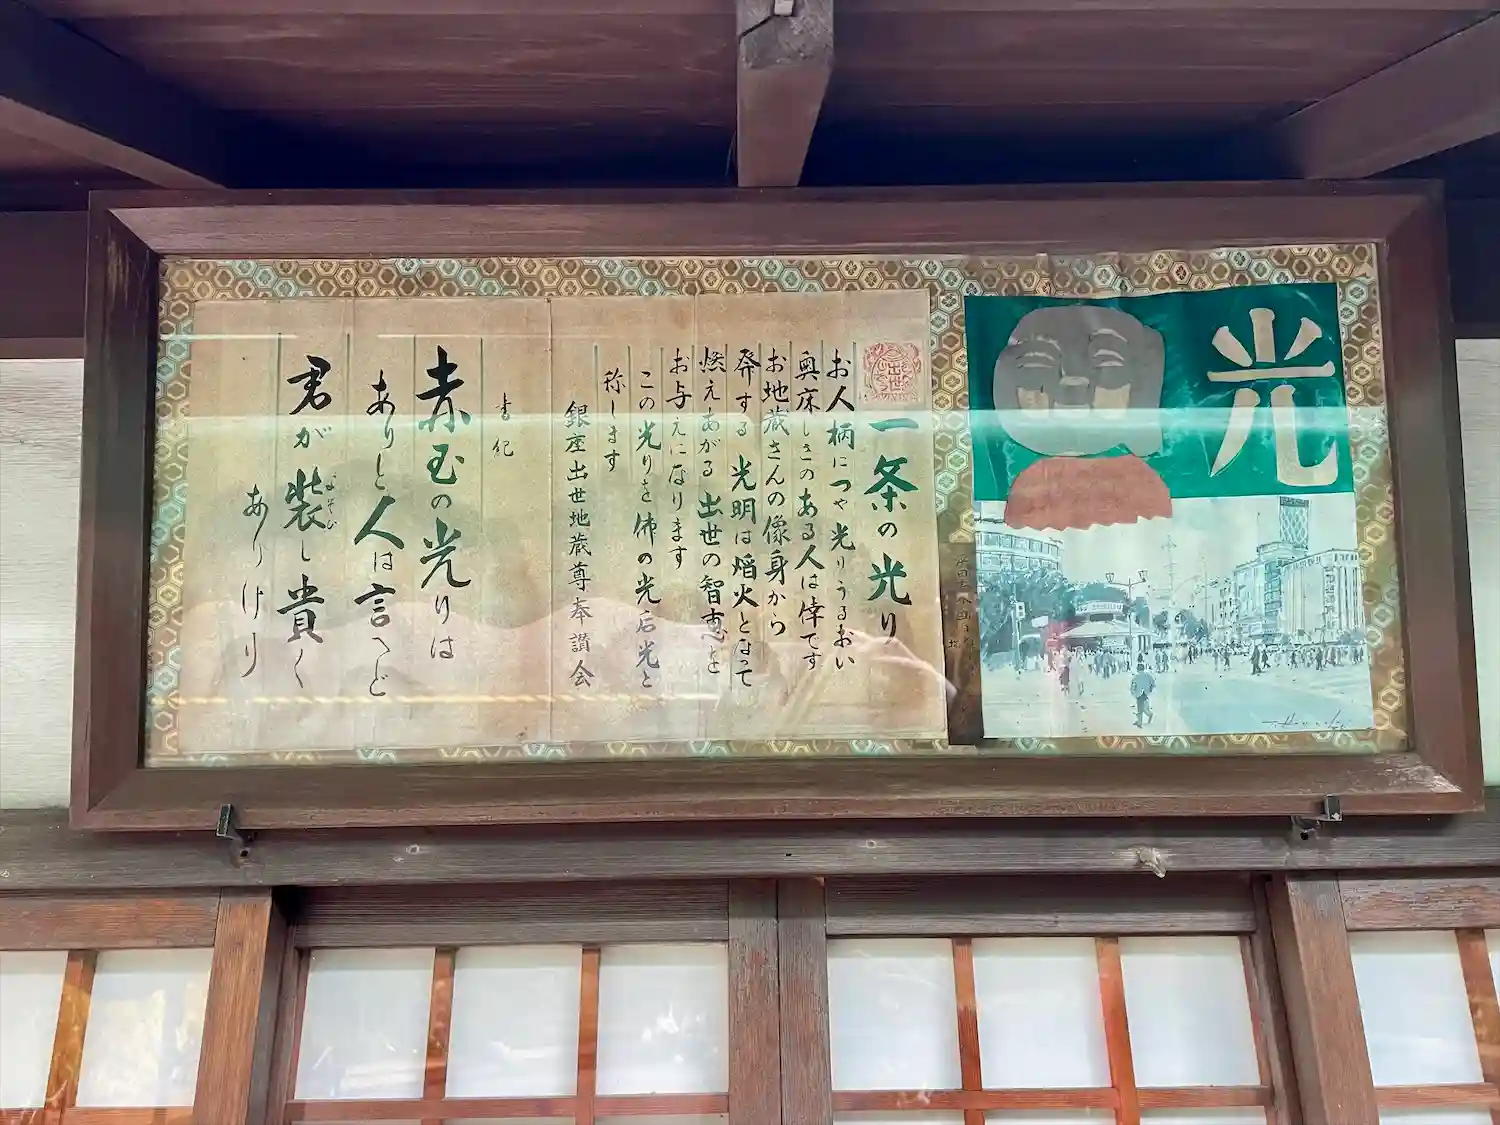 光
一条の光り
お人柄につや光りうるおい
奥床しさのある人は倖です
お地蔵さんの像身から
発する光明は焔火となって
燃えあがる出世の智恵を
お与えになります
この光りを佛の光 后光と
称します
銀座出世地蔵尊奉讃会
書紀
赤玉の光りは
ありと人は言へど
君が装し貴く
よそひ
ありけり